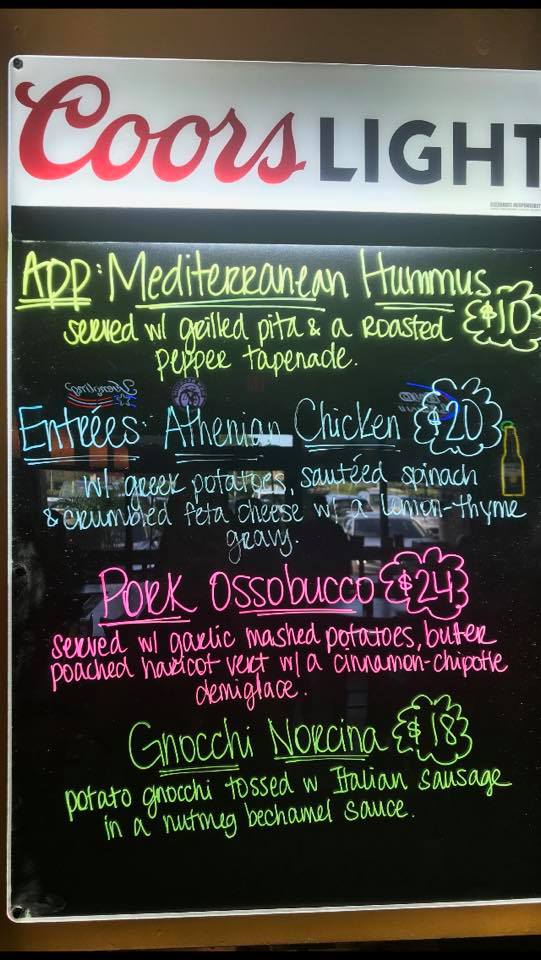 Coors LIGHT
APP: Mediterranean Hummus $10
served w/ grilled pita & a roasted
pepper tapenade.
Entrées: Athenian Chicken $20
w/ greek potatoes, sautéed spinach
& crumbled feta cheese w/ a lemon-thyme
gravy.
Pork Ossobucco $24
served w/ garlic mashed potatoes, butter
poached haricot vert w/ a cinnamon-chipotle
demiglace.
Gnocchi Norcina $18
potato gnocchi tossed w Italian sausage
in a nutmeg bechamel sauce.